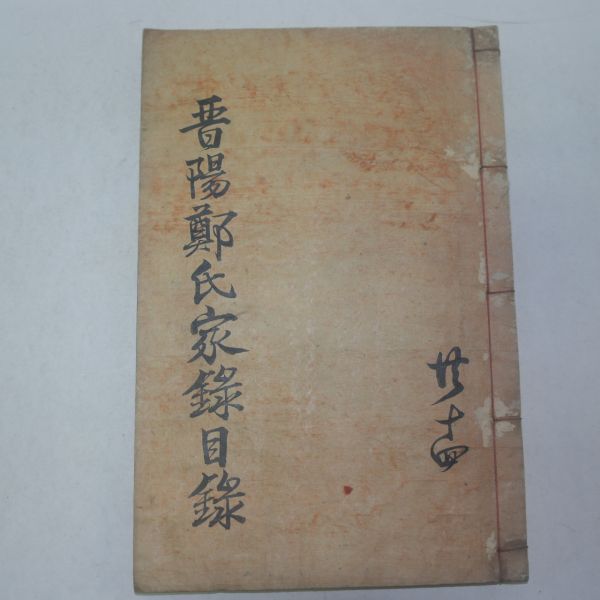 共十四
晋陽鄭氏家錄目錄